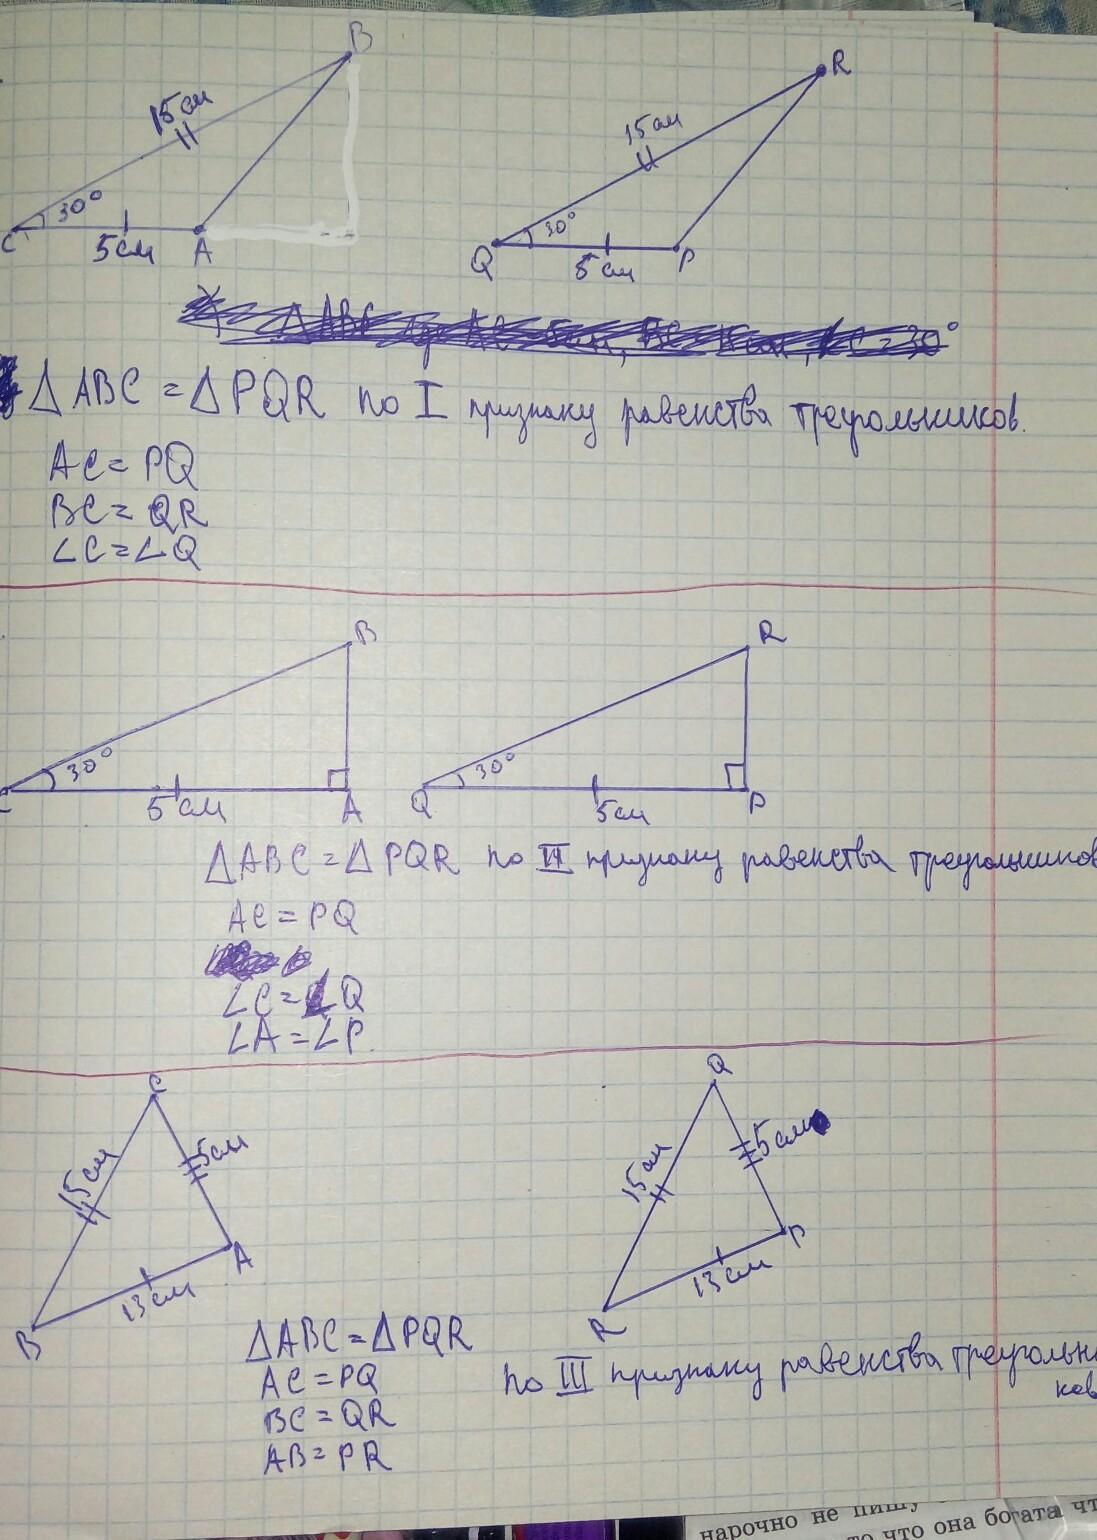 B
R
15 см
15 см
30°
30°
C
5 см
A
Q
5 см
P
ΔABC = ΔPQR по I признаку равенства треугольников.
AC = PQ
BC = QR
∠C = ∠Q
B
R
30°
30°
5 см
A
Q
5 см
P
ΔABC = ΔPQR по II признаку равенства треугольников
AC = PQ
∠C = ∠Q
∠A = ∠P.
C
Q
15 см
5 см
15 см
5 см
A
P
13 см
13 см
B
R
ΔABC = ΔPQR
AC = PQ
по III признаку равенства треугольни
ков
BC = QR
AB = PR
нарочно не пишу
то что она богата чт